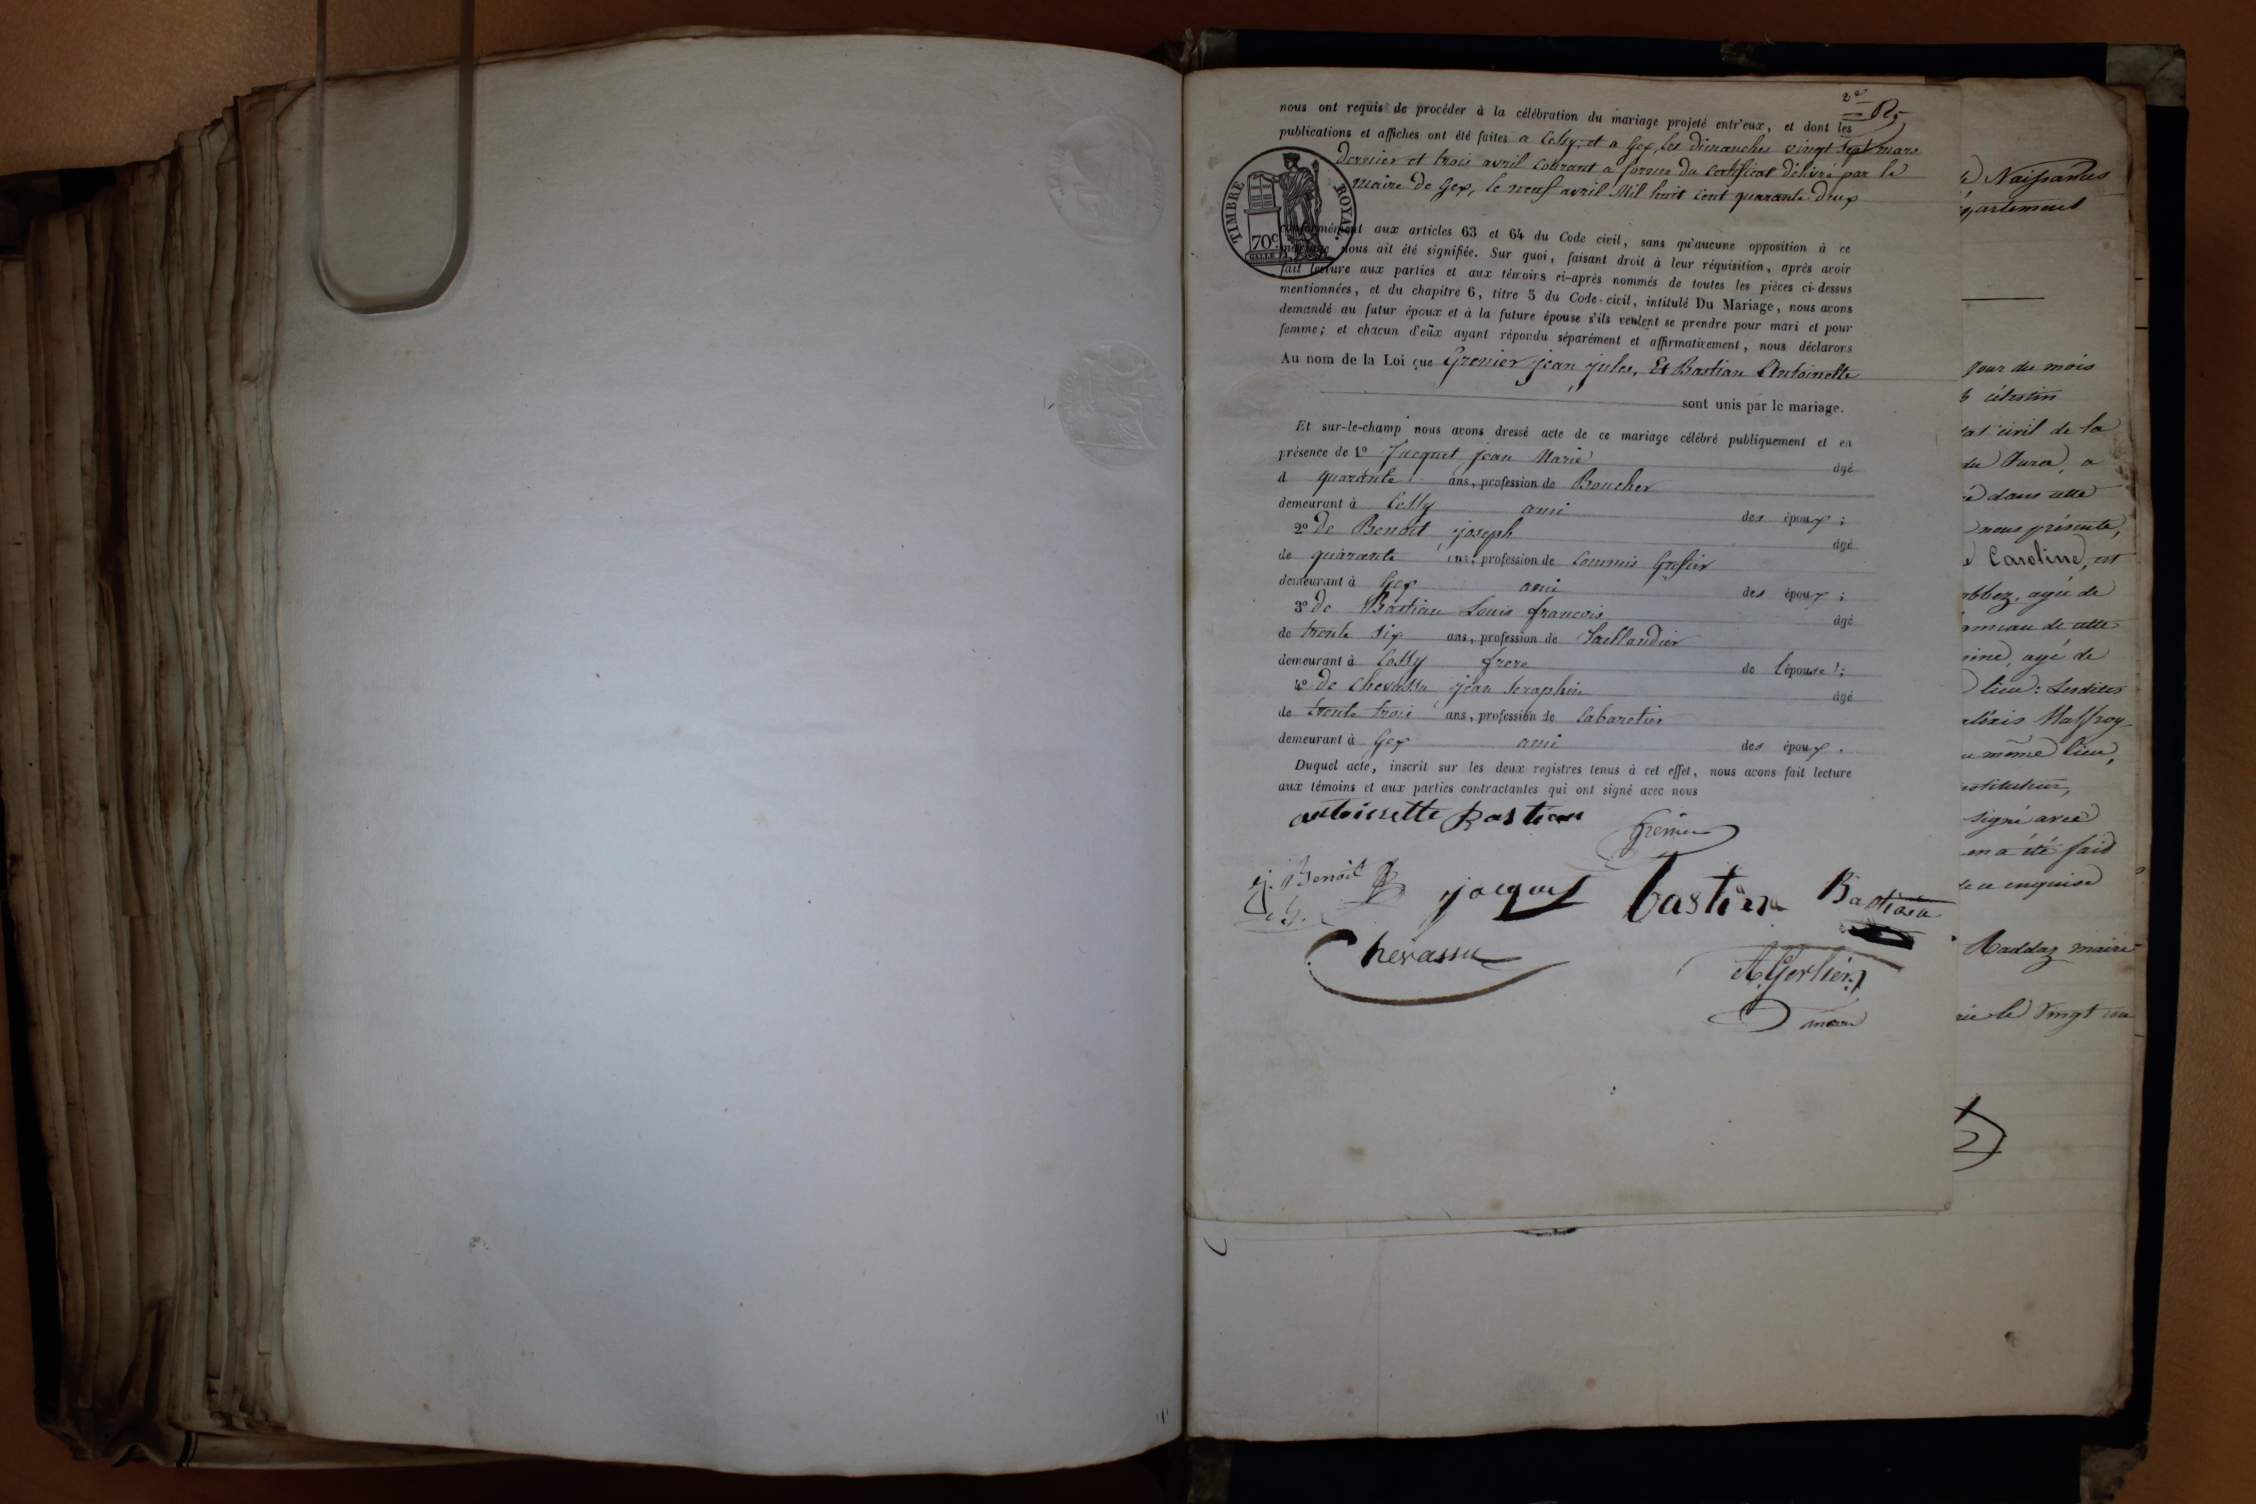 2e
nous ont requis de procéder à la célébration du mariage projeté entr'eux, et dont les
publications et affiches ont été faites a Cessy, et a Gex, les dimanches vingt sept mars
dernier et trois avril courant a forme du certificat délivré par le
maire de Gex, le neuf avril Mil huit cent quarante deux
TIMBRE ROYAL.
70c
conformément aux articles 63 et 64 du Code civil, sans qu'aucune opposition à ce
mariage nous ait été signifiée. Sur quoi, faisant droit à leur réquisition, après avoir
fait lecture aux parties et aux témoins ci-après nommés de toutes les pièces ci-dessus
mentionnées, et du chapitre 6, titre 5 du Code civil, intitulé Du Mariage, nous avons
demandé au futur époux et à la future épouse s'ils veulent se prendre pour mari et pour
femme; et chacun d'eux ayant répondu séparément et affirmativement, nous déclarons
Au nom de la Loi que Grenier jean jules, Et Bastian Antoinette
sont unis par le mariage.
Et sur-le-champ nous avons dressé acte de ce mariage célébré publiquement et en
présence de 1º Jacquet jean Marie âgé
d quarante ans, profession de Boucher
demeurant à Cessy ami des époux;
2º De Benoit joseph âgé
de quarante ans, profession de commis Grefier
demeurant à Gex ami des époux;
3º De Bastian Louis francois âgé
de trente six ans, profession de Taillandier
demeurant à Cessy frere de l'épouse;
4º De Chevassu jean Seraphin âgé
de trente trois ans, profession de Cabaretier
demeurant à Gex ami des époux.
Duquel acte, inscrit sur les deux registres tenus à cet effet, nous avons fait lecture
aux témoins et aux parties contractantes qui ont signé avec nous
antoinette Bastian
Grenier
j. Benoit
jaquet
bastian
Bastian
Chevassu
A. Gerlier
Naissances
département
jour du mois
célestin
état civil de la
du Jura, a
dans cette
nous présente,
Caroline, est
agé de
hameau de cette
agé de
lieu: Lesdites
alexis Maffroy
même lieu,
instituteur,
signé avec
en a été fait
ce enquise
maire
le vingt un